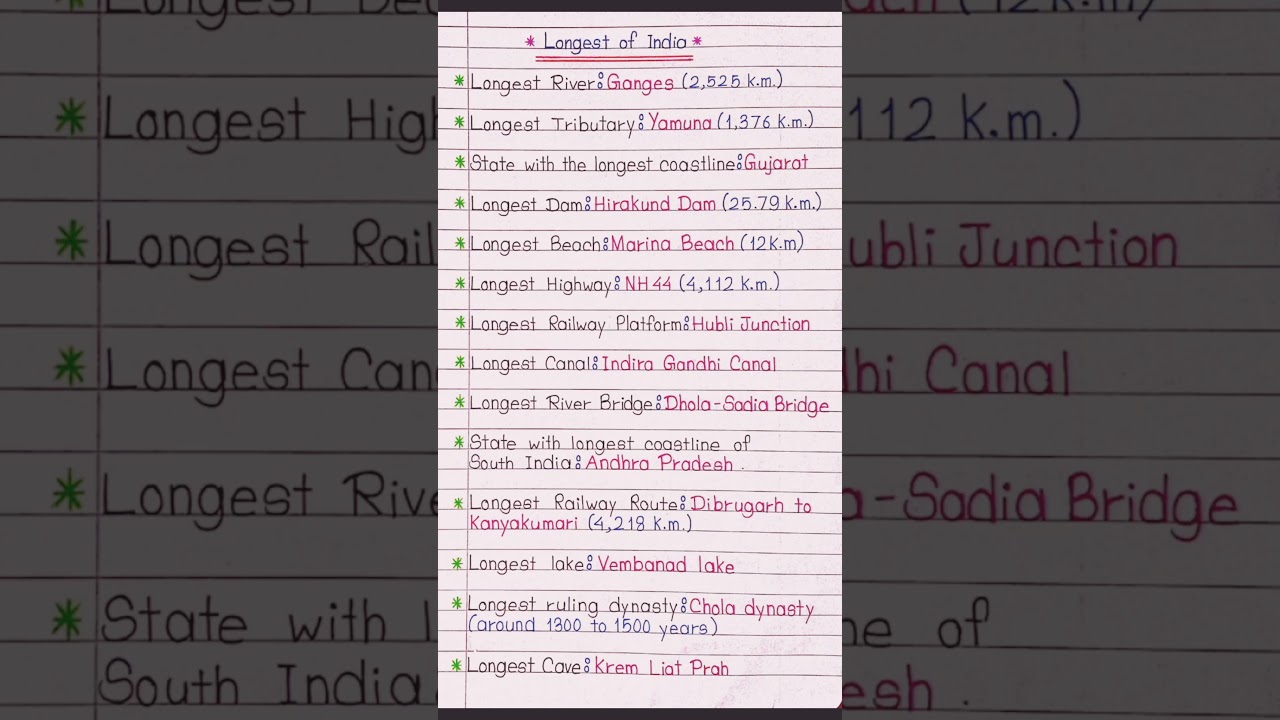 * Longest of India *
* Longest River: Ganges (2,525 k.m.)
* Longest Tributary: Yamuna (1,376 k.m.)
* State with the longest coastline: Gujarat
* Longest Dam: Hirakund Dam (25.79 k.m.)
* Longest Beach: Marina Beach (12k.m)
* Longest Highway: NH44 (4,112 k.m.)
* Longest Railway Platform: Hubli Junction
* Longest Canal: Indira Gandhi Canal
* Longest River Bridge: Dhola-Sadia Bridge
* State with longest coastline of
South India: Andhra Pradesh.
* Longest Railway Route: Dibrugarh to
Kanyakumari (4,218 k.m.)
* Longest lake: Vembanad lake
* Longest ruling dynasty: Chola dynasty
(around 1300 to 1500 years)
* Longest Cave: Krem Liat Prah